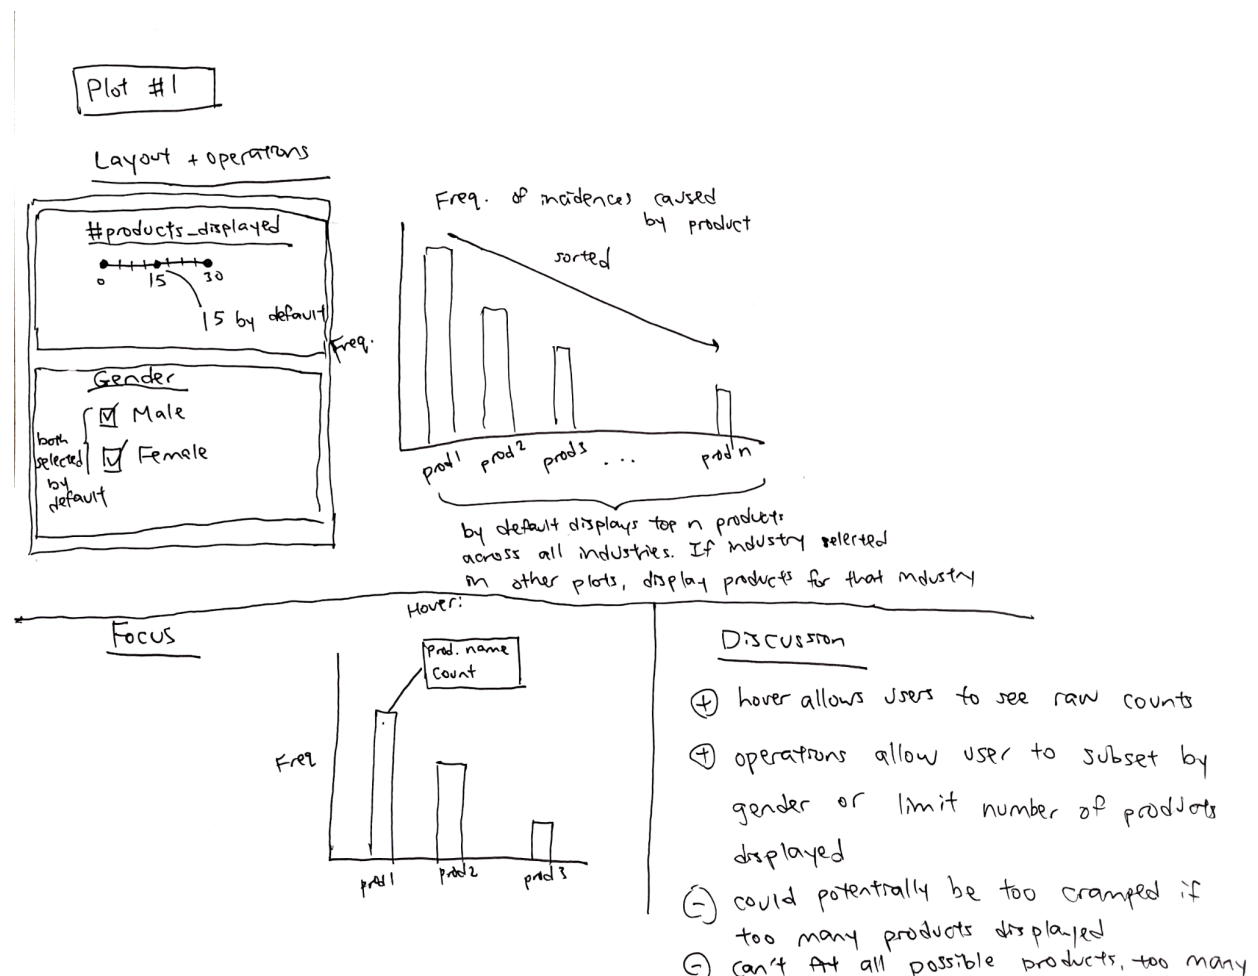 Plot #1
Layout + operations
#products_displayed
0 15 30
15 by default
Gender
Male
Female
both
selected
by
default
Freq. of incidences caused
by product
sorted
Freq.
prod1 prod2 prod3 ... prod n
by default displays top n products
across all industries. If industry selected
in other plots, display products for that industry
Focus
Hover:
Prod. name
Count
Freq
prod1 prod2 prod3
Discussion
+ hover allows users to see raw counts
+ operations allow user to subset by
gender or limit number of products
displayed
- could potentially be too cramped if
too many products displayed
- can't fit all possible products, too many